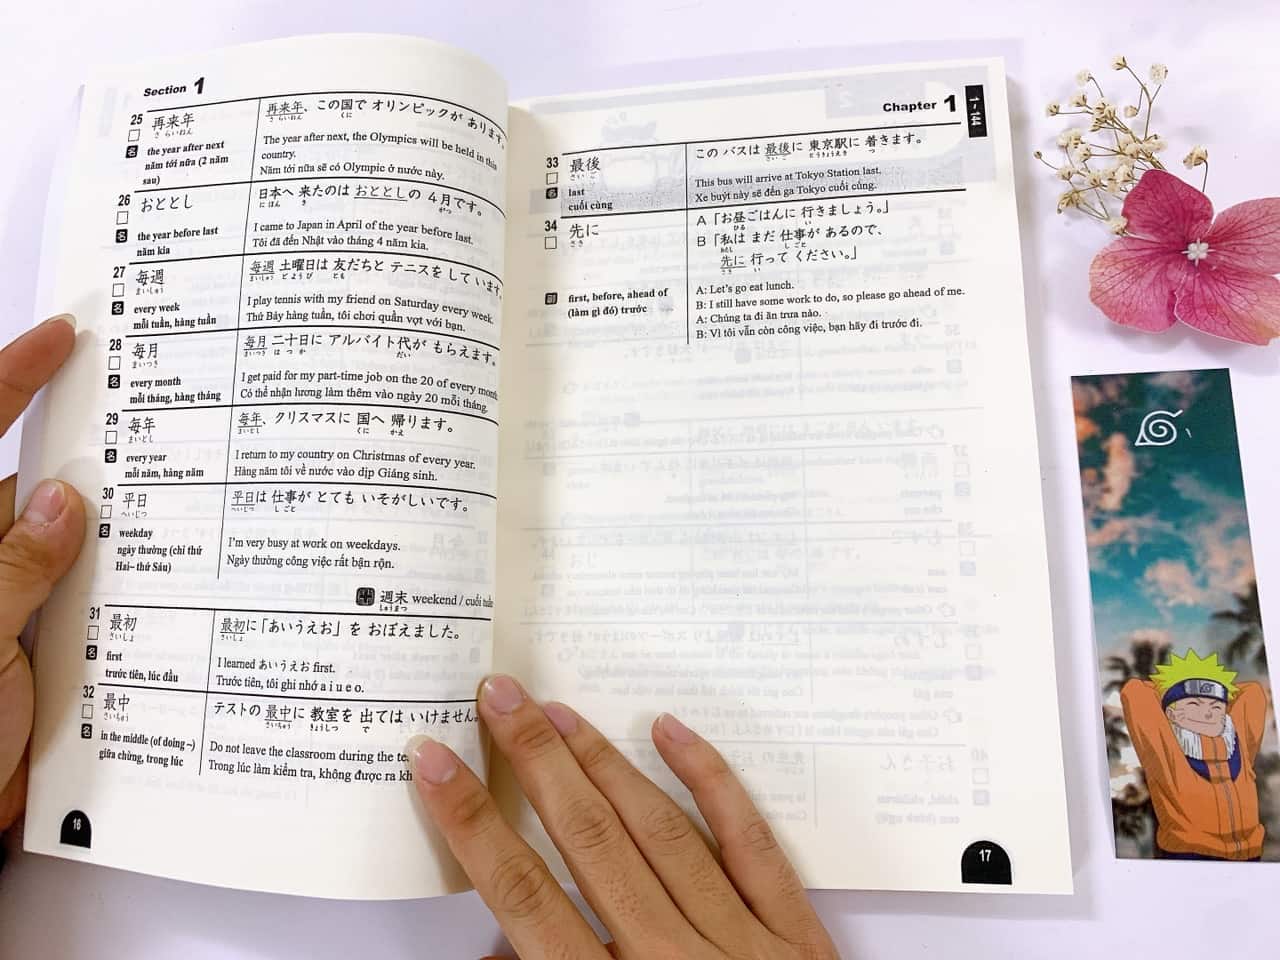 Section 1
25
再来年
さ らいねん
名
the year after next
năm tới nữa (2 năm
sau)
再来年、この国で オリンピックが あります
さ らいねん くに
The year after next, the Olympics will be held in this
country.
Năm tới nữa sẽ có Olympic ở nước này.
26
おととし
名
the year before last
năm kia
日本へ 来たのは おととしの 4月です。
にほん き がつ
I came to Japan in April of the year before last.
Tôi đã đến Nhật vào tháng 4 năm kia.
27
毎週
まいしゅう
名
every week
mỗi tuần, hàng tuần
毎週 土曜日は 友だちと テニスを して います
まいしゅう どようび とも
I play tennis with my friend on Saturday every week.
Thứ Bảy hàng tuần, tôi chơi quần vợt với bạn.
28
毎月
まいつき
名
every month
mỗi tháng, hàng tháng
毎月 二十日に アルバイト代が もらえます。
まいつき はつか だい
I get paid for my part-time job on the 20 of every month
Có thể nhận lương làm thêm vào ngày 20 mỗi tháng.
29
毎年
まいとし
名
every year
mỗi năm, hàng năm
毎年、クリスマスに 国へ 帰ります。
まいとし くに かえ
I return to my country on Christmas of every year.
Hàng năm tôi về nước vào dịp Giáng sinh.
30
平日
へいじつ
名
weekday
ngày thường (chỉ thứ
Hai– thứ Sáu)
平日は 仕事が とても いそがしいです。
へいじつ しごと
I'm very busy at work on weekdays.
Ngày thường công việc rất bận rộn.
週末 weekend / cuối tuần
しゅうまつ
31
最初
さいしょ
名
first
trước tiên, lúc đầu
最初に「あいうえお」を おぼえました。
さいしょ
I learned あいうえお first.
Trước tiên, tôi ghi nhớ a i u e o.
32
最中
さいちゅう
名
in the middle (of doing ~)
giữa chừng, trong lúc
テストの 最中に 教室を 出ては いけません。
さいちゅう きょうしつ で
Do not leave the classroom during the
Trong lúc làm kiểm tra, không được ra
16
Chapter 1
1-144
33
最後
さいご
名
last
cuối cùng
この バスは 最後に 東京駅に 着きます。
さいご とうきょうえき つ
This bus will arrive at Tokyo Station last.
Xe buýt này sẽ đến ga Tokyo cuối cùng.
34
先に
さき
副
first, before, ahead of
(làm gì đó) trước
A「お昼ごはんに 行きましょう。」
ひる い
B「私は まだ 仕事が あるので、
わたし しごと
先に 行って ください。」
さき い
A: Let's go eat lunch.
B: I still have some work to do, so please go ahead of me.
A: Chúng ta đi ăn trưa nào.
B: Vì tôi vẫn còn công việc, bạn hãy đi trước đi.
17